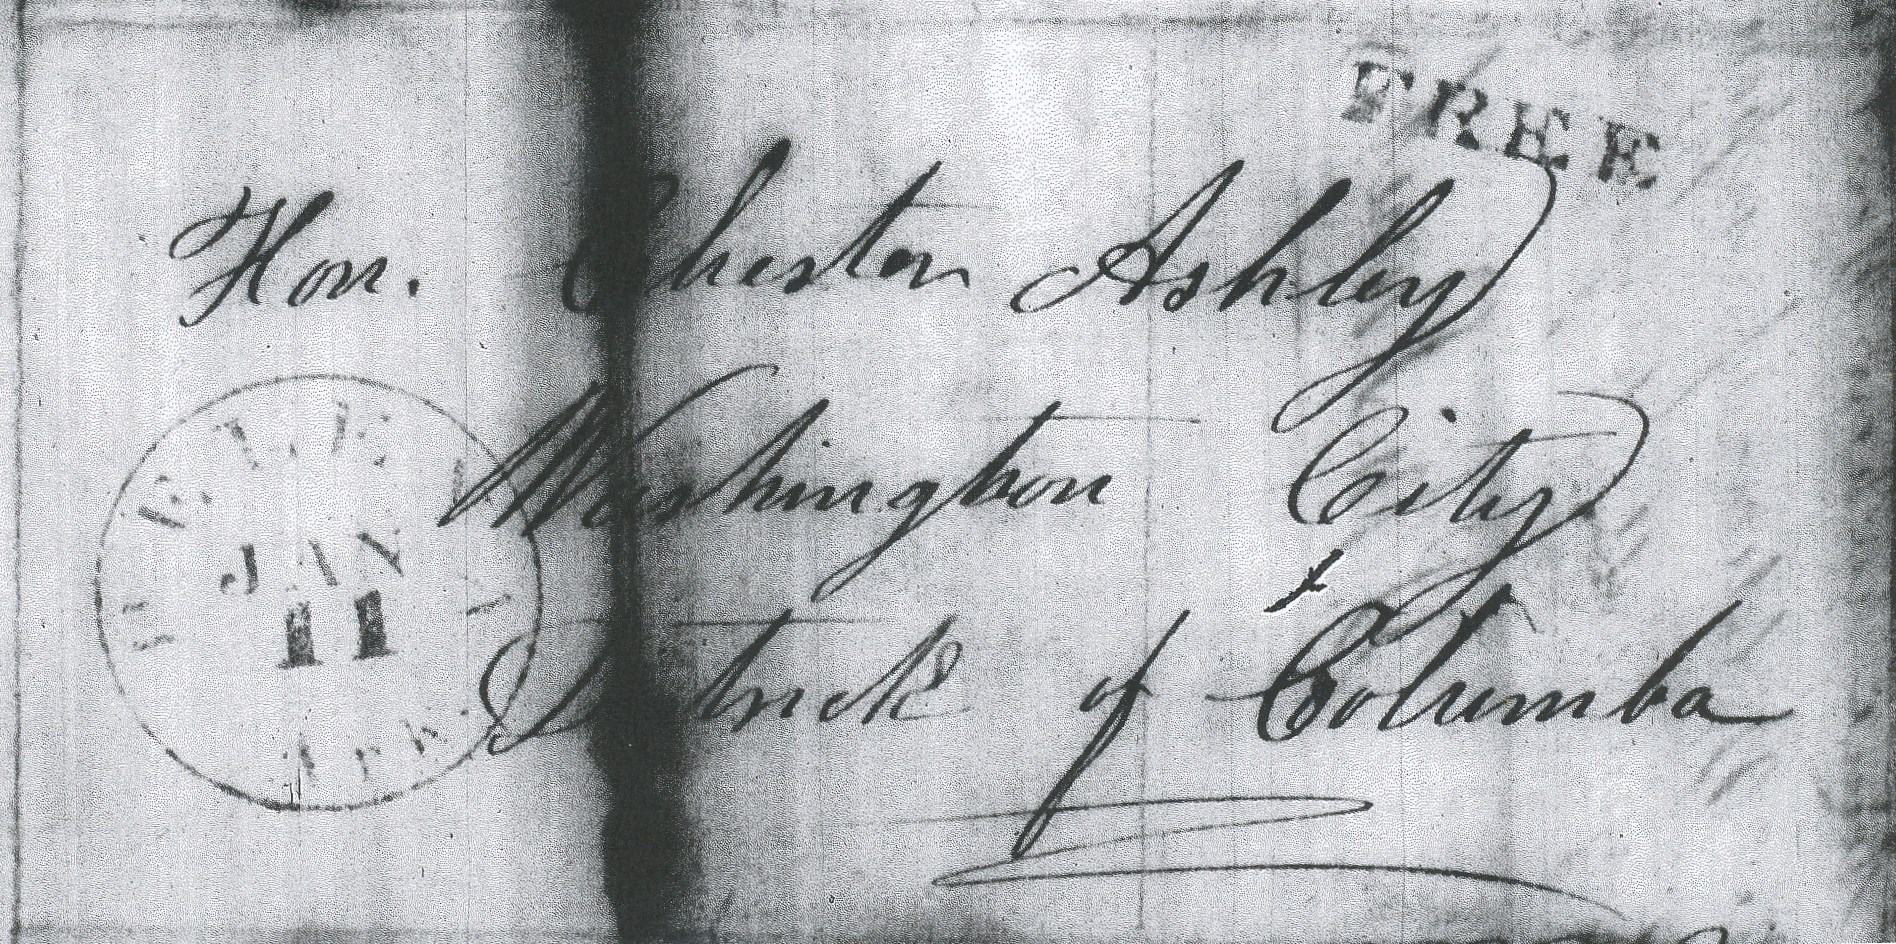 FREE
Hon. Chester Ashley
Washington City
JAN
11
District of Columba
Ark